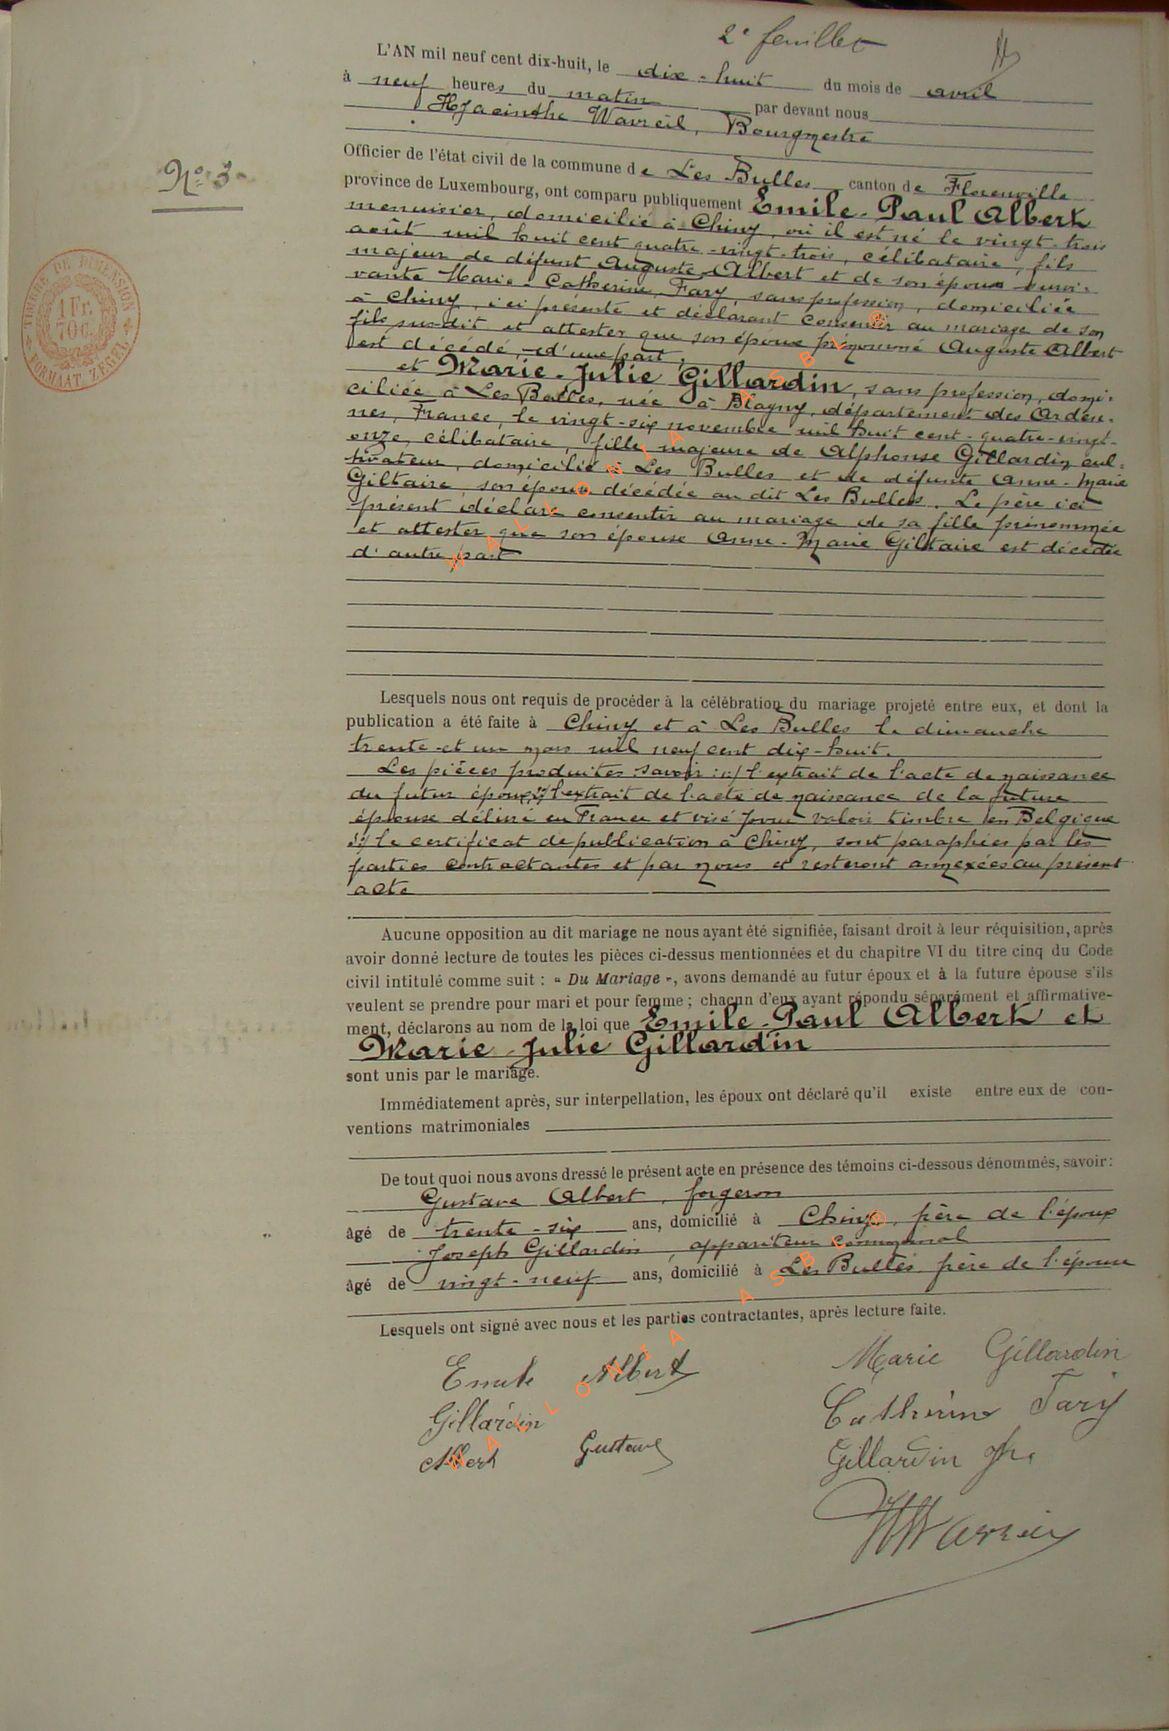 2e feuillet
L'AN mil neuf cent dix-huit, le dix-huit du mois de avril
à neuf heures du matin par devant nous
Hyacinthe Wavreil, Bourgmestre
Officier de l'état civil de la commune de Les Bulles canton de Florenville
province de Luxembourg, ont comparu publiquement Emile-Paul Albert
menuisier, domicilié à Chiny, où il est né le vingt-trois
août mil huit cent quatre-vingt-trois, célibataire, fils
majeur de défunt Auguste Albert et de son épouse survi-
vante Marie-Catherine Fary, sans profession, domiciliée
à Chiny, ici présente et déclarant consentir au mariage de son
fils susdit et attester que son époux prénommé Auguste Albert
est décédé, d'une part,
et Marie-Julie Gillardin, sans profession, domi-
ciliée à Les Bulles, née à Blagny, département des Arden-
nes, France, le vingt-six novembre mil huit cent-quatre-vingt-
onze, célibataire, fille majeure de Alphonse Gillardin, cul-
tivateur, domicilié à Les Bulles et de défunte Anne-Marie
Giltaire, son épouse, décédée au dit Les Bulles. Le père ici
présent déclare consentir au mariage de sa fille prénommée
et attester que son épouse Anne-Marie Giltaire est décédée
d'autre part
N° 3
TIMBRE DE DIMENSION
1 Fr.
70 C.
FORMAAT ZEGEL
Lesquels nous ont requis de procéder à la célébration du mariage projeté entre eux, et dont la
publication a été faite à Chiny et à Les Bulles le dimanche
trente-et un mars mil neuf cent dix-huit.
Les pièces produites savoir: 1°/ l'extrait de l'acte de naissance
du futur époux; 2°/ l'extrait de l'acte de naissance de la future
épouse délivré en France et visé pour valoir timbre en Belgique
3°/ le certificat de publication à Chiny, sont paraphées par les
parties contractantes et par nous et resteront annexées au présent
acte
Aucune opposition au dit mariage ne nous ayant été signifiée, faisant droit à leur réquisition, après
avoir donné lecture de toutes les pièces ci-dessus mentionnées et du chapitre VI du titre cinq du Code
civil intitulé comme suit : « Du Mariage », avons demandé au futur époux et à la future épouse s'ils
veulent se prendre pour mari et pour femme ; chacun d'eux ayant répondu séparément et affirmative-
ment, déclarons au nom de la loi que Emile-Paul Albert et
Marie-Julie Gillardin
sont unis par le mariage.
Immédiatement après, sur interpellation, les époux ont déclaré qu'il existe entre eux de con-
ventions matrimoniales
De tout quoi nous avons dressé le présent acte en présence des témoins ci-dessous dénommés, savoir :
Gustave Albert, forgeron
âgé de trente-six ans, domicilié à Chiny, frère de l'époux
Joseph Gillardin, appariteur communal
âgé de vingt-neuf ans, domicilié à Les Bulles, frère de l'épouse
Lesquels ont signé avec nous et les parties contractantes, après lecture faite.
Emile Albert Marie Gillardin
Gillardin Catherine Fary
Albert Gustave Gillardin Jh.
HWavreil
WALLONIA ASBL ©
WALLONIA ASBL ©